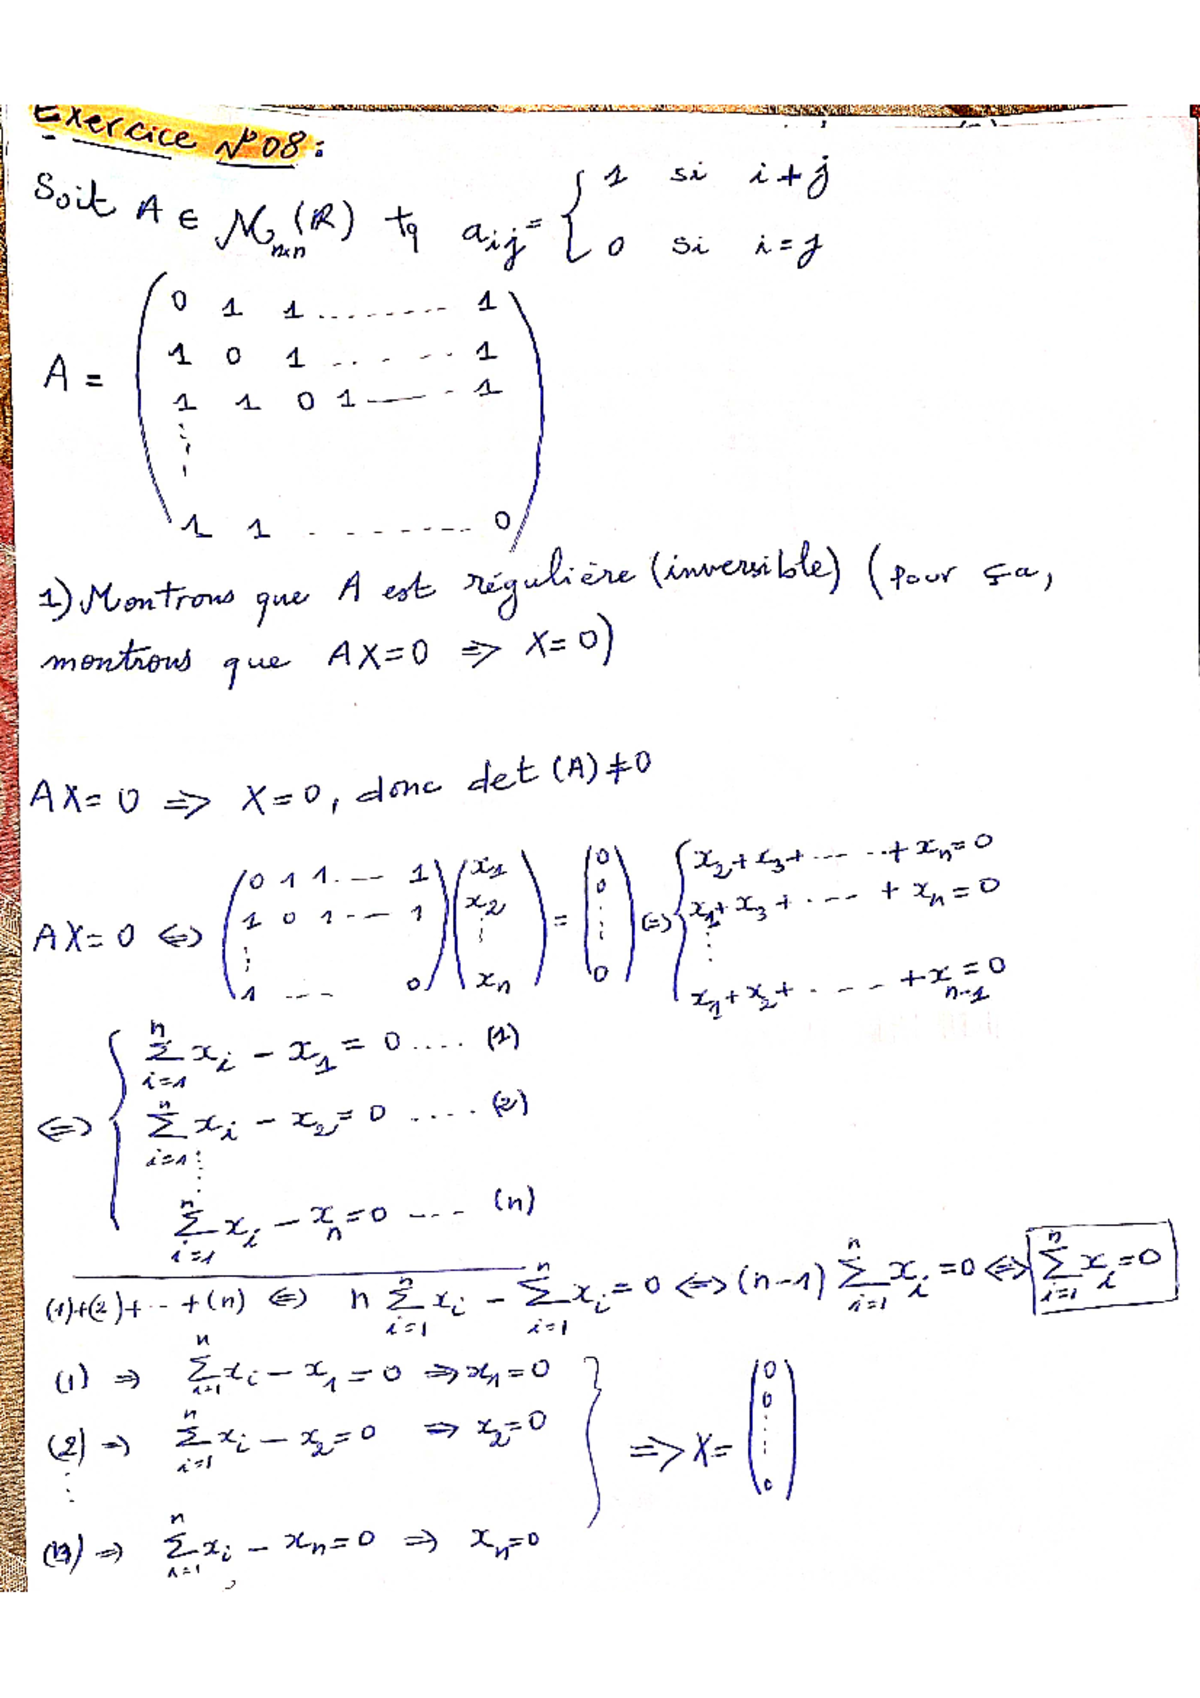 Exercice N°08:
Soit A ∈ M_{n×n}(ℝ) tq a_{ij} = { 1 si i + j
0 si i = j
A = ( 0 1 1 ........ 1
1 0 1 ....... 1
1 1 0 1 —— - 1
⋮
1 1 . ------- 0 )
1) Montrons que A est régulière (inversible) (pour ça,
montrons que AX=0 ⇒ X=0)
AX=0 ⇒ X=0, donc det (A) ≠ 0
AX=0 ⇔ ( 0 1 1 .-- 1 ; 1 0 1 --- 1 ; ⋮ ; 1 --- 0 ) ( x_1 ; x_2 ; ⋮ ; x_n ) = ( 0 ; 0 ; ⋮ ; 0 ) ⇔ { x_2 + x_3 + ------ + x_n = 0
x_1 + x_3 + . --- + x_n = 0
⋮
x_1 + x_2 + . --- + x_{n-1} = 0
⇔ { ∑_{i=1}^{n} x_i − x_1 = 0 .... (1)
∑_{i=1}^{n} x_i − x_2 = 0 ..... (2)
⋮
∑_{i=1}^{n} x_i − x_n = 0 ---- (n)
(1)+(2)+ -- +(n) ⇔ n ∑_{i=1}^{n} x_i − ∑_{i=1}^{n} x_i = 0 ⇔ (n−1) ∑_{i=1}^{n} x_i = 0 ⇔ ∑_{i=1}^{n} x_i = 0
(1) ⇒ ∑_{i=1}^{n} x_i − x_1 = 0 ⇒ x_1 = 0
(2) ⇒ ∑_{i=1}^{n} x_i − x_2 = 0 ⇒ x_2 = 0 } ⇒ X = ( 0 ; 0 ; ⋮ ; 0 )
⋮
(n) ⇒ ∑_{i=1}^{n} x_i − x_n = 0 ⇒ x_n = 0